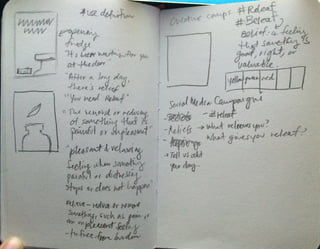 # use definition
fridge
It's been waiting for you
at the door
"After a long day,
there's relief"
"You need Releaf"
"The removal or reducing
of something that is
painful or unpleasant"
"pleasant & relaxing
feeling when something
painful or distressing
stops or does not happen"
relieve - reduce or remove
something, such as pain or
an unpleasant feeling
- to free from burden
Creative Camps: #Releaf
#Beleaf?
Belief: a feeling
that something is
good, right, or
valuable.
yellow
red
Social Media Campaigns
- Beliefs
- What relieves you?
What gives you releaf?
- Tell us abt
your day